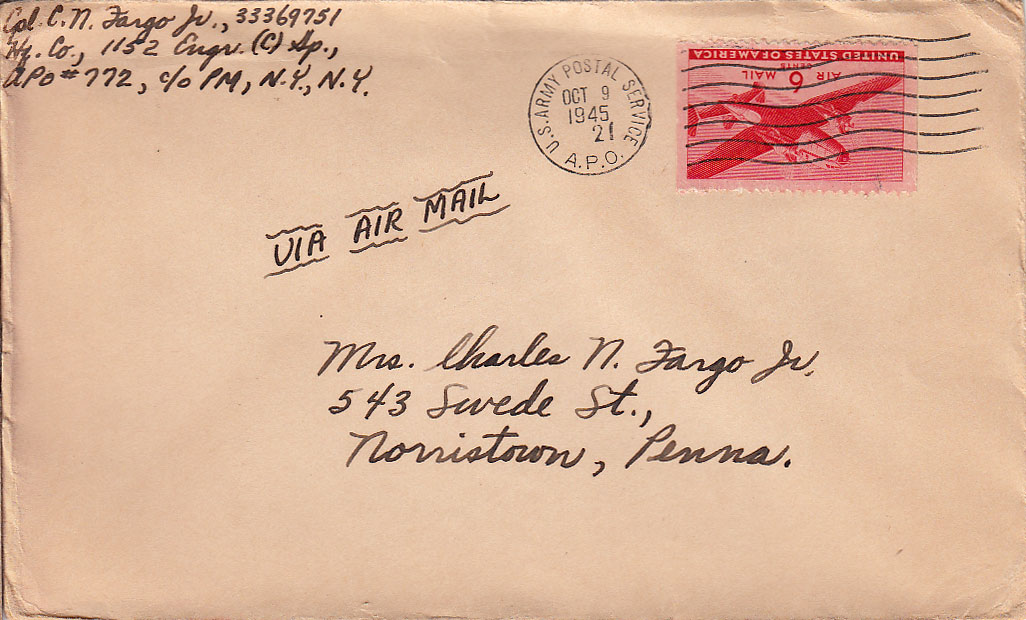 Cpl. C. N. Fargo Jr., 33369751
Hq. Co., 1152 Engr. (C) Gp.,
APO #772, c/o PM, N.Y., N.Y.
U.S. ARMY POSTAL SERVICE
OCT 9
1945
21
A.P.O.
UNITED STATES OF AMERICA
6 CENTS
AIR MAIL
VIA AIR MAIL
Mrs. Charles N. Fargo Jr.
543 Swede St.,
Norristown, Penna.